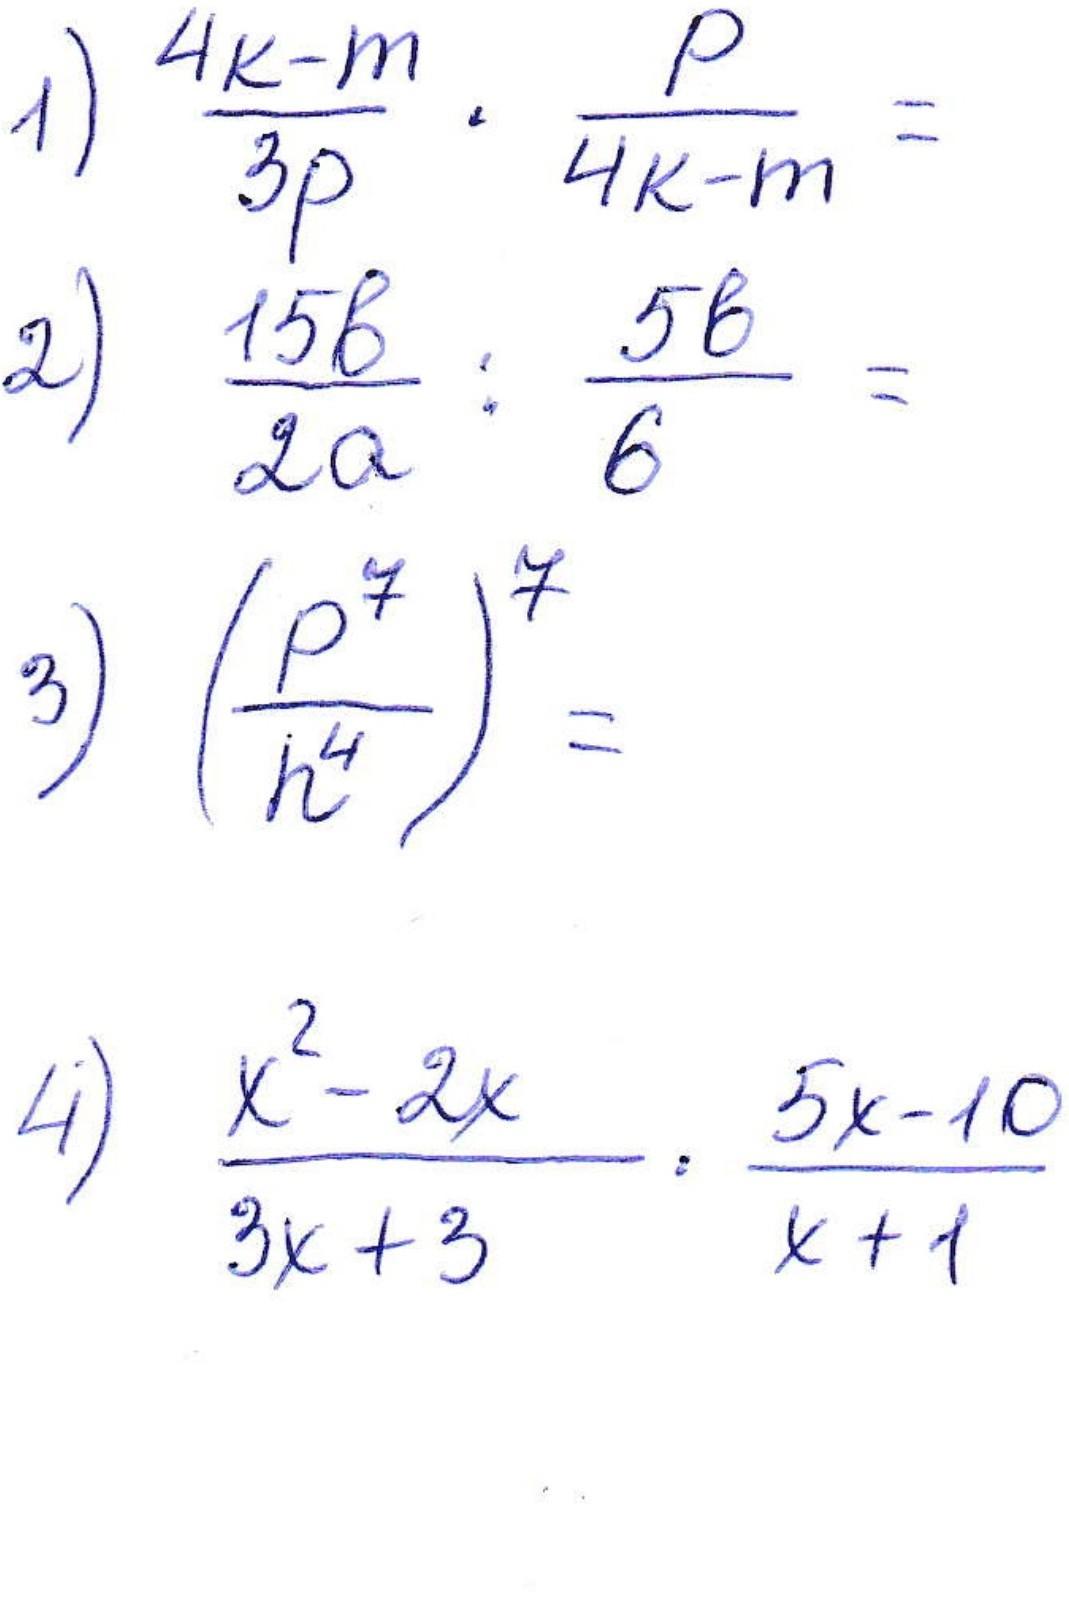 1) \frac{4к-m}{3p} · \frac{p}{4к-m} =
2) \frac{15b}{2a} : \frac{5b}{6} =
3) \left(\frac{p^7}{h^4}\right)^7 =
4) \frac{x^2-2x}{3x+3} · \frac{5x-10}{x+1}